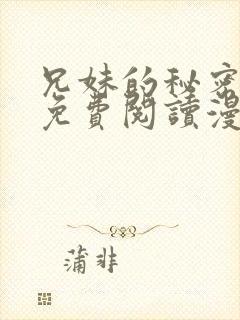 兄妹的秘密
免費閱讀漫
蒲非